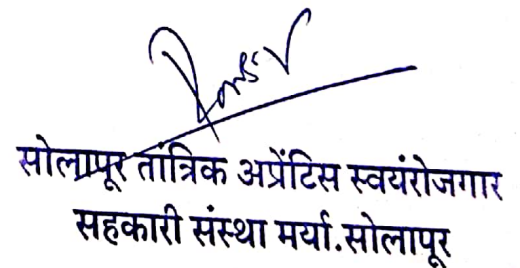 सोलापूर तांत्रिक अप्रेंटिस स्वयंरोजगार
सहकारी संस्था मर्या.सोलापूर